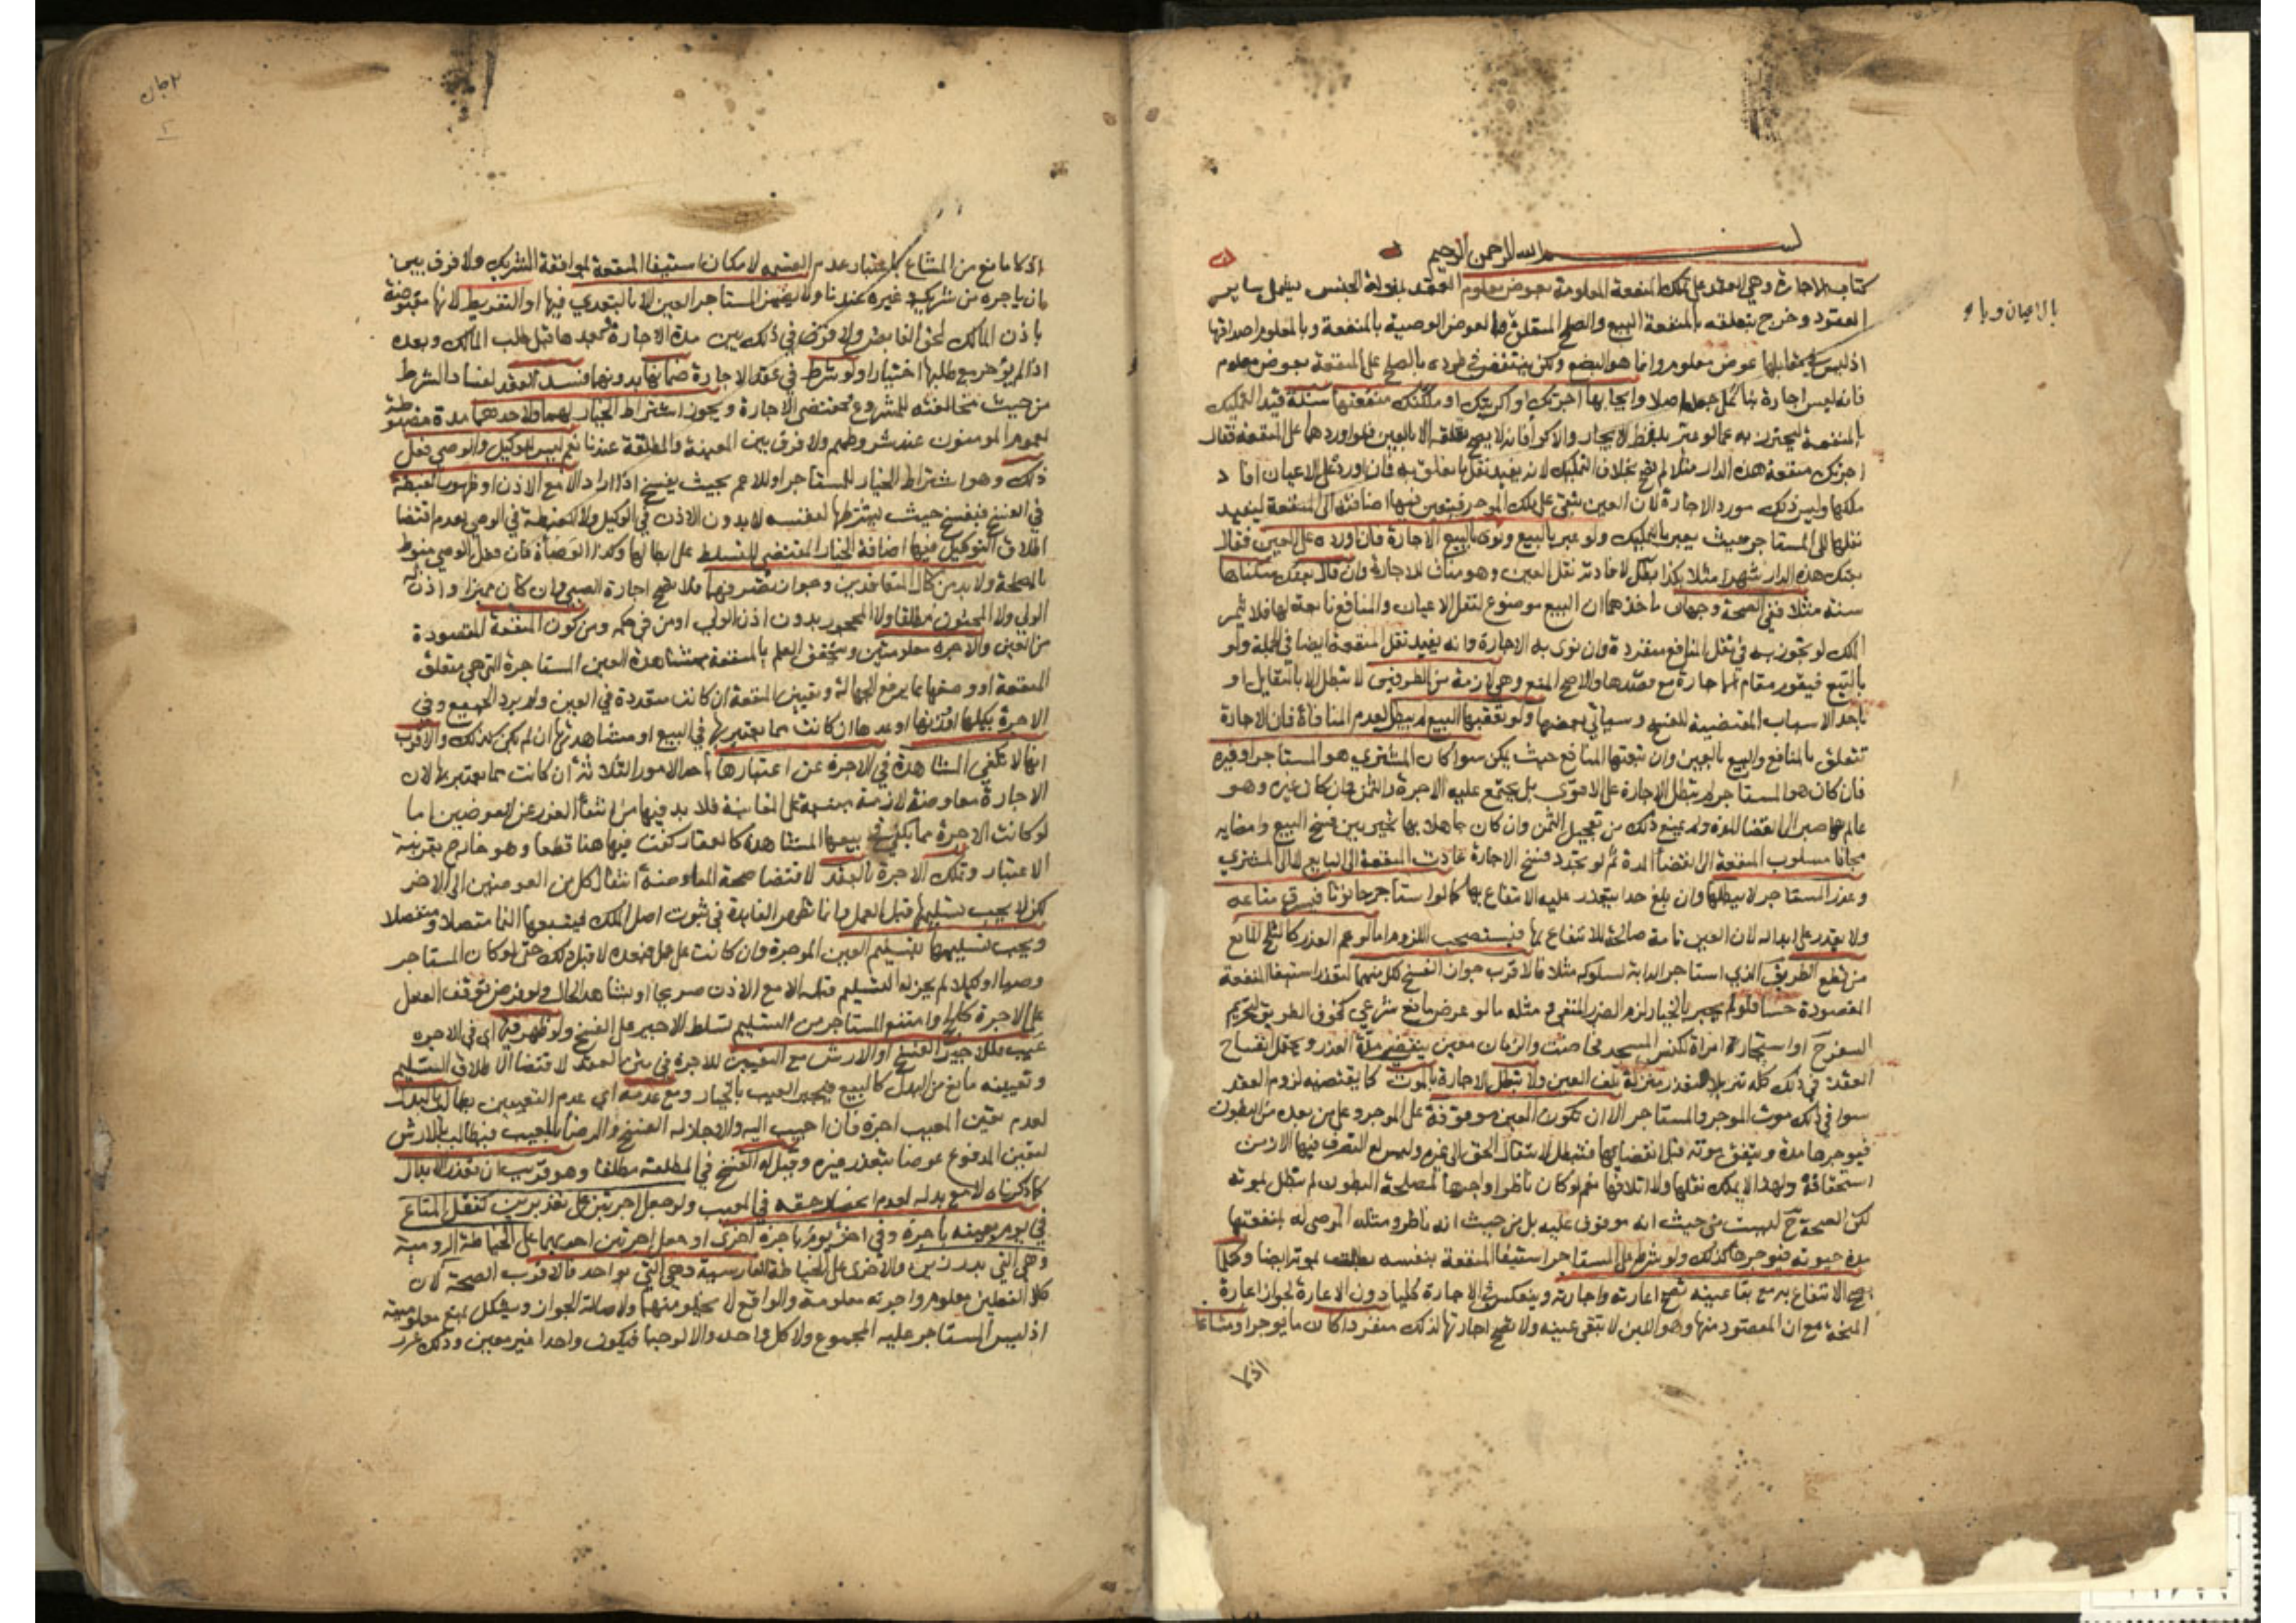 بسم الله الرحمن الرحيم
كتاب الاجارة وهي العقد على تملك المنفعة المعلومة بعوض معلوم العقد بمنزلة الجنس يشمل ساير
العقود وخرج بتعلقه بالمنفعة البيع والصلح المتعلق بالاعيان وبالعوض الوصية بالمنفعة وبالمعلوم اصداقها
اذ ليس في مقابلها عوض معلوم وانما هو البضع ولكن ينتقض في طرده بالصلح على المنفعة بعوض معلوم
فانه ليس اجارة بناء على جعله اصلا وايجابها اجرتك او اكريتك او ملكتك منفعتها سنة قيد التمليك
بالمنفعة ليحترز به عما لو عبر بلفظ الايجار والاكراء فانه لا يصح تعلقه الا بالعين فلو اوردهما على المنفعة فقال
اجرتك منفعة هذه الدار مثلا لم يصح بخلاف التمليك لانه يفيد نقل ما تعلق به فان اورد على الاعيان افاد
ملكها وليس ذلك مورد الاجارة لان العين تبقى على ملك الموجر فيتعين فيها اضافته الى المنفعة ليفيد
نقلها الى المستاجر حيث يعبر بالتمليك ولو عبر بالبيع ونوى بالبيع الاجارة فان اورده على العين فقال
بعتك هذه الدار شهرا مثلا بكذا بطل لافادته نقل العين وهو مناف للاجارة وان قال بعتك سكناها
سنة مثلا ففي الصحة وجهان ماخذهما ان البيع موضوع لنقل الاعيان والمنافع تابعة لها فلا يثمر
الملك لو تجوز به في نقل المنافع منفردة وان نوى به الاجارة وانه يفيد نقل المنفعة ايضا في الجملة ولو
بالتبع فيقوم مقام الاجارة مع قصدها والاصح المنع وهي لازمة من الطرفين لا تبطل الا بالتقايل او
باحد الاسباب المقتضية للفسخ وسياتي بعضها ولو تعقبها البيع لم يبطل لعدم المنافاة فان الاجارة
تتعلق بالمنافع والبيع بالعين وان تبعتها المنافع حيث يمكن سوا كان المشتري هو المستاجر او غيره
فان كان هو المستاجر لم تبطل الاجارة على الاقوى بل يجتمع عليه الاجرة والثمن وان كان غيره وهو
عالم بها صبر الى انقضا المدة ولم يمنع ذلك من تعجيل الثمن وان كان جاهلا بها تخير بين فسخ البيع وامضايه
مجانا مسلوب المنفعة الى انقضاء المدة ثم لو تجدد فسخ الاجارة عادت المنفعة الى البايع لا الى المشتري
وعذر المستاجر لا يبطلها وان بلغ حدا يتعذر عليه الانتفاع بها كما لو استاجر حانوتا فسرق متاعه
ولا يقدر على ابداله لان العين تامة صالحة للانتفاع بها فيستصحب اللزوم اما لو عم العذر كالثلج المانع
من قطع الطريق الذي استاجر الدابة لسلوكه مثلا فالاقرب جواز الفسخ لكل منهما لتعذر استيفا المنفعة
المقصودة حسا فلو لم يجبر بالخيار لزم الضرر المنفي ومثله ما لو عرض مانع شرعي كخوف الطريق لتحريم
السفر ح او استيجار امراة لكنس المسجد فحاضت والزمان معين ينقضي مدة العذر ويحتمل انفساخ
العقد في ذلك كله تنزيلا للتعذر منزلة تلف العين ولا تبطل الاجارة بالموت كما يقتضيه لزوم العقد
سوا في ذلك موت الموجر والمستاجر الا ان تكون العين موقوفة على الموجر وعلى من بعده من البطون
فيوجرها مدة ويتفق موته قبل انقضايها فتبطل لانتقال الحق الى غيره وليس له التصرف فيها الا زمن
استحقاقه ولهذا لا يملك نقلها ولا اتلافها نعم لو كان ناظرا واجرها لمصلحة البطون لم تبطل بموته
لكن الصحة ح ليست من حيث انه موقوف عليه بل من حيث انه ناظر ومثله الموصى له بمنفعتها
مدة حيوته فيوجرها كذلك ولو شرط على المستاجر استيفا المنفعة بنفسه بطلت بموته ايضا وكلما
يصح الانتفاع به مع بقا عينه تصح اعارته واجارته وينعكس في الاجارة كليا دون الاعارة لجواز اعارة
المنحة مع ان المقصود منها وهو اللبن لا تبقى عينه ولا تصح اجارتها لذلك منفردا كان ما يوجر او مشاعا
اذ لا
بالاعيان
اذ لا مانع من المشاع باعتبار عدم القسمة لامكان استيفا المنفعة بموافقة الشريك ولا فرق بين
ان ياجره من شريكه وغيره عندنا ولا يضمن المستاجر العين الا بالتعدي فيها او التفريط لانها مقبوضة
باذن المالك لحق القابض ولا فرق في ذلك بين مدة الاجارة وبعدها قبل طلب المالك وبعده
اذا لم يؤخر مع طلبها اختيارا ولو شرط في عقد الاجارة ضمانها بدونهما فسد العقد لفساد الشرط
من حيث مخالفته للمشروع ومقتضى الاجارة ويجوز اشتراط الخيار لهما ولاحدهما مدة مضبوطة
لعموم المومنون عند شروطهم ولا فرق بين المعينة والمطلقة عندنا نعم ليس للوكيل والوصي فعل
ذلك وهو اشتراط الخيار للمستاجر او للاعم بحيث يفسخ اذا اراد الا مع الاذن او ظهور الغبطة
في الفسخ فيفسخ حيث يشترطها لنفسه لا بدون الاذن في الوكيل ولا الغبطة في الوصي لعدم اقتضا
اطلاق التوكيل فيها اضافة الخيار المقتضي للتسلط على ابطالها وكذا الوصاية فان فعل الوصي منوط
بالمصلحة ولا بد من كمال المتعاقدين وجواز تصرفهما فلا تصح اجارة الصبي وان كان مميزا واذن له
الولي ولا المجنون مطلقا ولا المحجور بدون اذن الولي او من في حكمه ومن كون المنفعة المقصودة
من العين والاجرة معلومتين ويتحقق العلم بالمنفعة بمشاهدة العين المستاجرة التي هي متعلق
المنفعة او وصفها بما يرفع الجهالة وتعيين المنفعة ان كانت متعددة في العين ولم يرد الجميع وفي
الاجرة بكيلها او وزنها او عدها ان كانت مما يعتبر بها في البيع او مشاهدتها ان لم تكن كذلك والاقرب
انها لا تكفي المشاهدة في الاجرة عن اعتبارها باحد الامور الثلاثة ان كانت مما يعتبر بها لان
الاجارة معاوضة لازمة مبنية على المغابنة فلا بد فيها من انتفاء الغرر عن العوضين اما
لو كانت الاجرة مما يكفي في بيعها المشاهدة كالعقار كفت فيها هنا قطعا وهو خارج بقرينة
الاعتبار وتملك الاجرة بالعقد لاقتضا صحة المعاوضة انتقال كل من العوضين الى الاخر
لكن لا يجب تسليمها قبل العمل وانما تظهر الفايدة في ثبوت اصل الملك فيتبعها النما متصلا ومنفصلا
ويجب تسليمها بتسليم العين الموجرة وان كانت على عمل فبعده لا قبل ذلك حتى لو كان المستاجر
وصيا او وكيلا لم يجز له التسليم قبله الا مع الاذن صريحا او بشاهد الحال ولو فرض توقف الفعل
على الاجرة كالحج وامتنع المستاجر من التسليم تسلط الاجير على الفسخ ولو ظهر فيها اي في الاجرة
عيب فللاجير الفسخ او الارش مع التعيين للاجرة في متن العقد لاقتضا الاطلاق التسليم
وتعيينه مانع من البدل كالبيع فيجبر العيب بالخيار ومع عدمه اي عدم التعيين يطالب بالبدل
لعدم تعين المعيب اجرة فان اجيب اليه والا جاز له الفسخ والرضا بالمعيب فيطالب بالارش
لتعين المدفوع عوضا بتعذر غيره وقيل له الفسخ في المطلقة مطلقا وهو قريب ان تعذر الابدال
كما ذكرناه لا مع بدله لعدم انحصار حقه في المعيب ولو جعل اجرتين على تقديرين كنقل المتاع
في يوم بعينه باجرة وفي اخر يوم باجرة اخرى او جعل اجرتين احديهما على الخياطة الرومية
وهي التي بدرزين والاخرى على الخياطة الفارسية وهي التي بواحد فالاقرب الصحة لان
كلا الفعلين معلوم واجرته معلومة والواقع لا يخلو منهما ولاصالة الجواز ويشكل بمنع معلوميته
اذ ليس المستاجر عليه المجموع ولا كل واحد والا لوجبا فيكون واحدا غير معين وذلك غرر